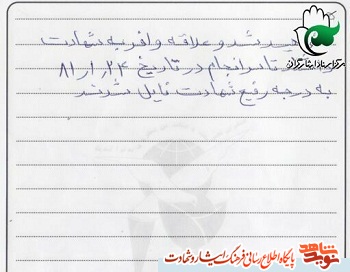 شد و علاقه وافر به شهادت
تا سرانجام در تاریخ ۸۱٫۱٫۲۴
به درجه رفیع شهادت نایل شدند
مرکز اسناد ایثارگران
نوید شاهد
پایگاه اطلاع رسانی فرهنگ ایثار و شهادت